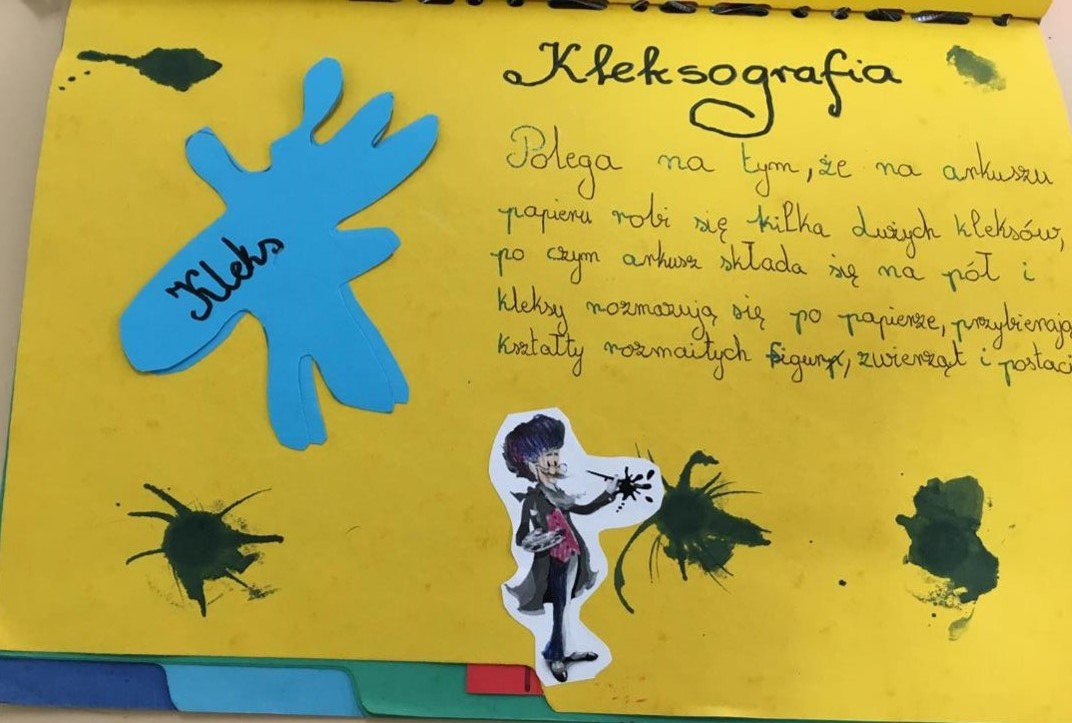 Kleksografia
Polega na tym, że na arkuszu
papieru robi się kilka dużych kleksów,
po czym arkusz składa się na pół i
kleksy rozmazują się po papierze, przybierają
kształty rozmaitych figur, zwierząt i postaci
Kleks